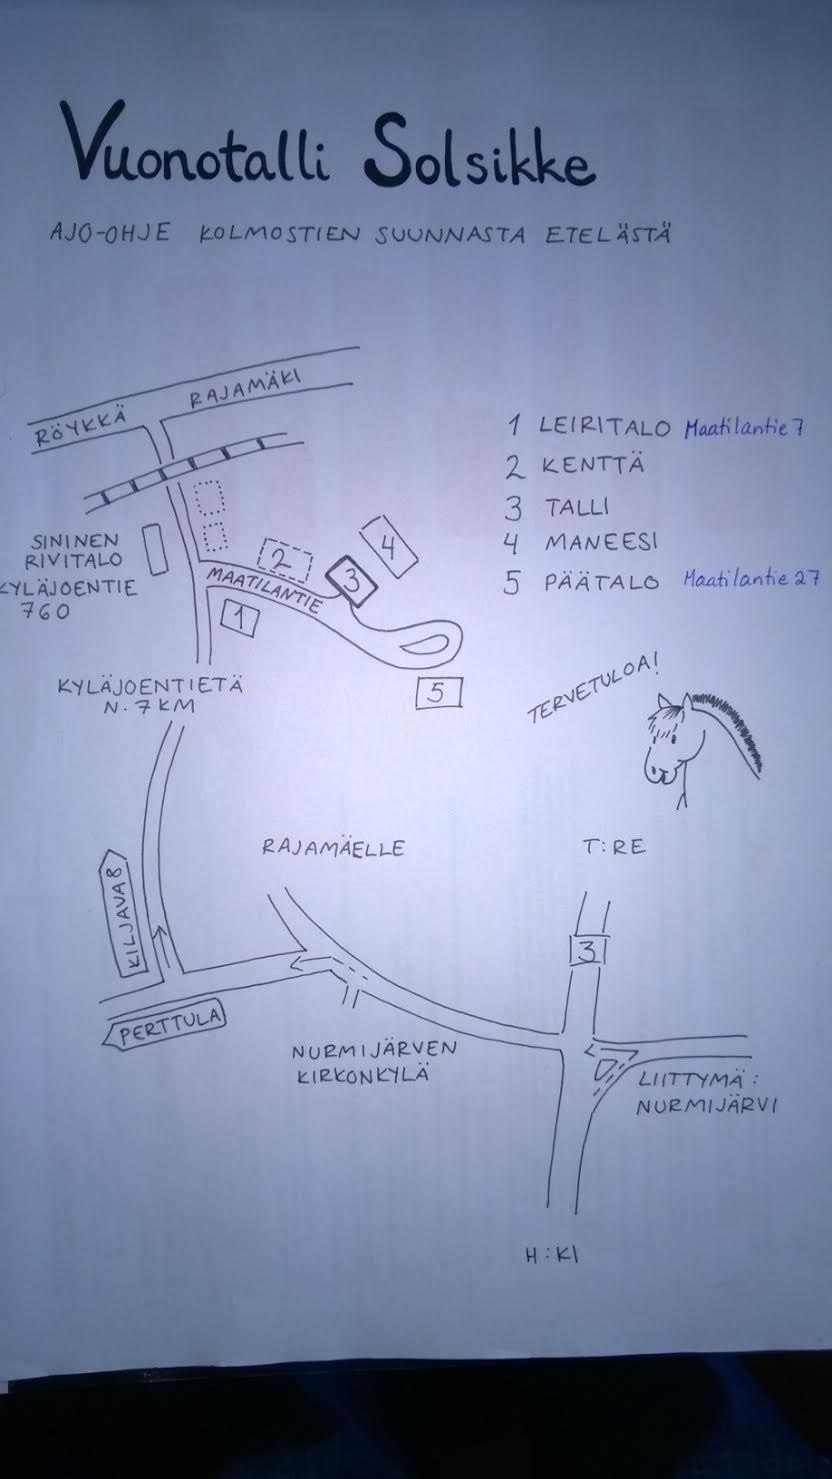 Vuonotalli Solsikke
AJO-OHJE KOLMOSTIEN SUUNNASTA ETELÄSTÄ
RÖYKKÄ
RAJAMÄKI
1 LEIRITALO Maatilantie 7
2 KENTTÄ
3 TALLI
4 MANEESI
5 PÄÄTALO Maatilantie 27
SININEN
RIVITALO
KYLÄJOENTIE
760
2
4
3
MAATILANTIE
1
5
KYLÄJOENTIETÄ
N. 7 KM
TERVETULOA!
RAJAMÄELLE
T:RE
KILJAVA 8
3
PERTTULA
NURMIJÄRVEN
KIRKONKYLÄ
LIITTYMÄ:
NURMIJÄRVI
H:KI